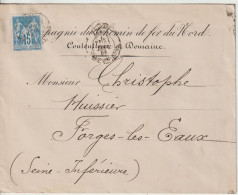 Compagnie du Chemin de fer du Nord
Contentieux et Domaine.
Monsieur Christophe
Huissier
Forges-les-Eaux
(Seine-Inférieure)